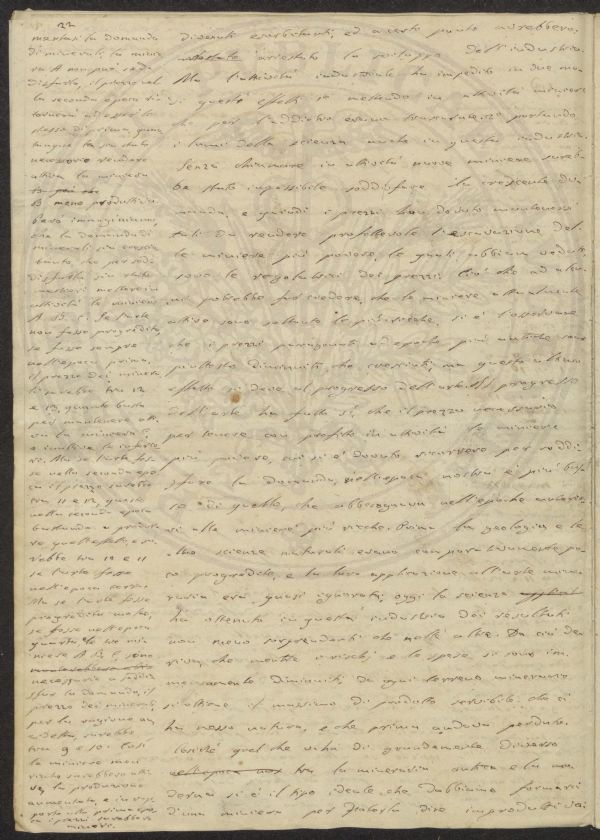 22
mentasi la domanda
di minerali, la minie
ra A non può sod
disfarla, il prezzo nel
la seconda epoca ri
tornerà ad esser lo
stesso di prima, quan
tunque sia stato
necessario rendere
attiva la miniera
B meno produttiva.
immaginiamo,
che la domanda di
minerali sia cresciu
che per sod
disfarla sia stato
mestieri mettere in
attività le miniere
A B C. Se l'arte
non fosse progredita,
se fosse sempre
nell'epoca prima,
il prezzo dei minerali
sarebbe tra 12
e 13, quanto basta
per mantenere atti
va la miniera C
Ma se l'arte fosse
nella seconda epo
ca il prezzo sarebbe
tra 11 e 12, questo
nella seconda epoca
bastando a produr
re quell'effetto, e sa
rebbe tra 10 e 11
se l'arte fosse
nell'epoca terza.
Ma se l'arte fosse
progredita molto,
se fosse nell'epoca
quarta, le tre mi
niere A B C, sono
necessarie a soddi
sfar la domanda, il
prezzo dei minerali,
per la ragione an
zidetta, sarebbe
tra 9 e 10. Così
le miniere
sarebbero atti
ve, la produzione
aumentata, e in
prima epoca
i prezzi sarebbero
minori.
divenuti esorbitanti, ed a certo punto avrebbero
arrestato lo sviluppo dell'industria.
Ma l'attività industriale ha impedito in due mo
di questi effetti, mettendo in attività miniere
che per l'addietro erano trascurate, portando
i lumi della scienza anche in questa industria.
Senza chiamare in attività nuove miniere sareb
be stato impossibile soddisfare la crescente do
manda, e quindi i prezzi han dovuto mantenersi
tali da rendere profittevole l'escavazione del
le miniere più povere, le quali, abbiam veduto,
sono le regolatrici dei prezzi. Ciò che ad alcu
ni potrebbe far credere, che le miniere attualmente
attive sono soltanto le più ricche, si è l'osservare
che i prezzi paragonati ad epoche più antiche sono
piuttosto diminuiti, che cresciuti, ma questo
effetto si deve al progresso dell'arte. Il progresso
dell'arte ha fatto sì, che il prezzo necessario
per tenere con profitto in attività le miniere
più povere, cui si è dovuto ricorrere per soddi
sfare la domanda, nell'epoca nostra è più bas
so di quello, che abbisognava nell'epoche anterio
ri alle miniere più ricche. Prima la geologia e le
altre scienze naturali erano comparativamente po
co progredite, e la loro applicazione all'arte mine
raria era quasi ignorata; oggi la scienza
ha ottenuto in questa industria dei risultati
non meno sorprendenti che nelle altre. Da ciò de
riva, che mentre i rischi e le spese si sono im
mensamente diminuiti, da ogni terreno minerario
si ottiene il massimo di prodotto servibile, che ci
ha messo natura, e che prima andava perduto.
Cosicché quel che vi ha di grandemente diverso
tra la mineraria antica e la mo
derna si è il tipo ideale che dobbiamo formarci
d'una miniera per poterla dire improduttiva